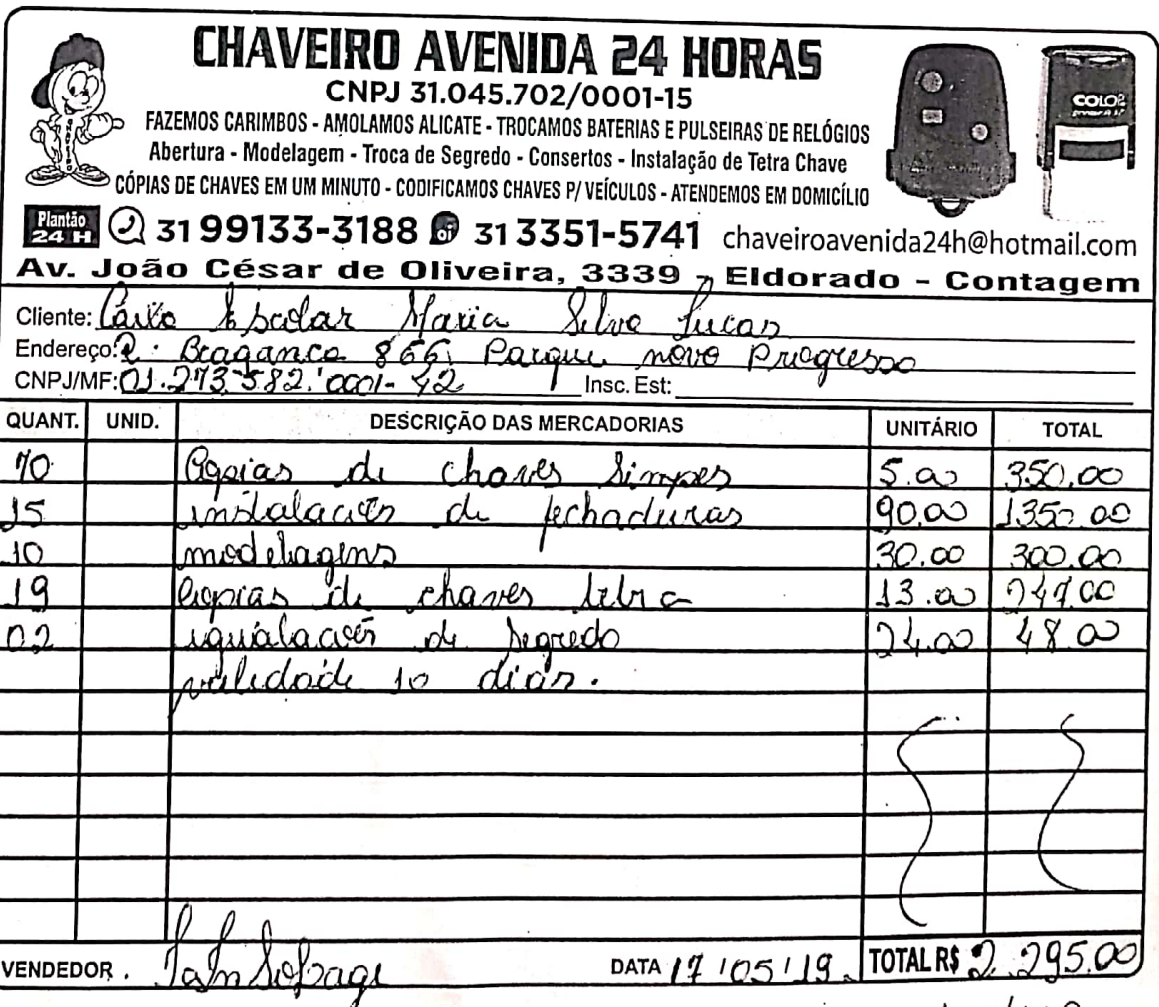 CHAVEIRO AVENIDA 24 HORAS
CNPJ 31.045.702/0001-15
FAZEMOS CARIMBOS - AMOLAMOS ALICATE - TROCAMOS BATERIAS E PULSEIRAS DE RELÓGIOS
Abertura - Modelagem - Troca de Segredo - Consertos - Instalação de Tetra Chave
CÓPIAS DE CHAVES EM UM MINUTO - CODIFICAMOS CHAVES P/ VEÍCULOS - ATENDEMOS EM DOMICÍLIO
CHAVEIRO
COLOP
Plantão 24 H 31 99133-3188 oi 31 3351-5741 chaveiroavenida24h@hotmail.com
Av. João César de Oliveira, 3339 - Eldorado - Contagem
Cliente: Caixa Escolar Maria Silva Lucas
Endereço: R. Bragança 866 Parque novo Progresso
CNPJ/MF: 01.273.582.'0001-42 Insc. Est:
QUANT. UNID. DESCRIÇÃO DAS MERCADORIAS UNITÁRIO TOTAL
70 Copias de chaves Simpes 5.00 350.00
15 instalacões de fechaduras 90.00 1350.00
10 modelagens 30.00 300.00
19 Copias de chaves tetra 13.00 247.00
02 igualacões de Segredo 24.00 48.00
validade 10 dias.
VENDEDOR. DATA 17/05/19. TOTAL R$ 2.295.00